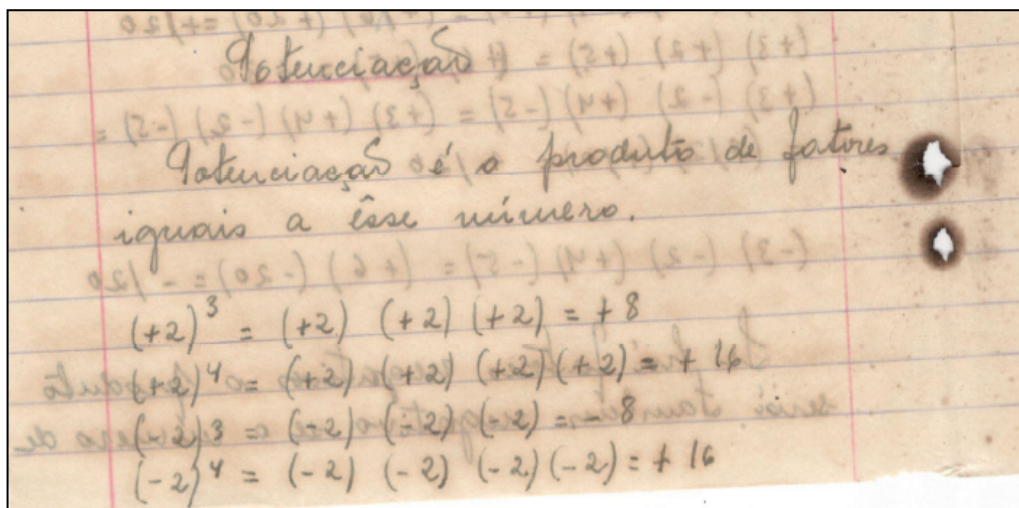 Potenciação
Potenciação é o produto de fatores
iguais a êsse número.
(+2)³ = (+2) (+2) (+2) = + 8
(+2)⁴ = (+2) (+2) (+2) (+2) = + 16
(-2)³ = (-2) (-2) (-2) = - 8
(-2)⁴ = (-2) (-2) (-2) (-2) = + 16